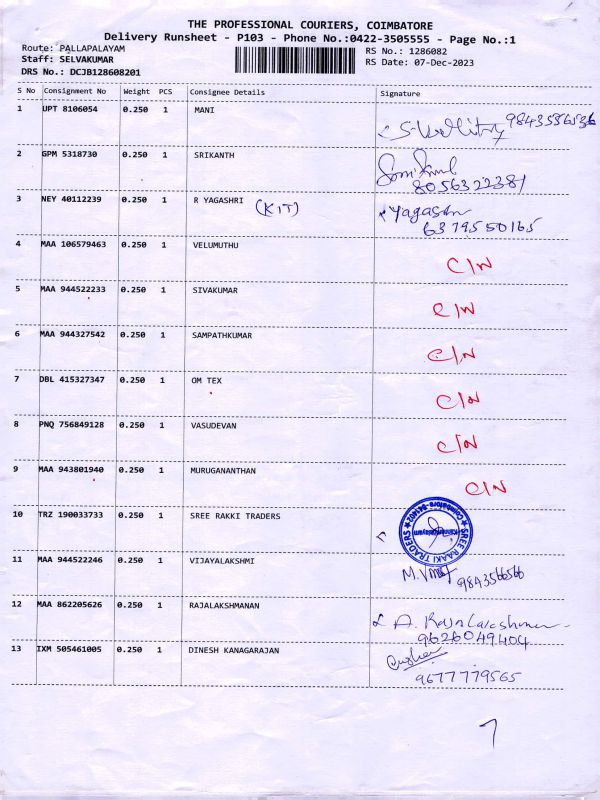 THE PROFESSIONAL COURIERS, COIMBATORE
Delivery Runsheet - P103 - Phone No.:0422-3505555 - Page No.:1
Route: PALLAPALAYAM
RS No.: 1286082
Staff: SELVAKUMAR
RS Date: 07-Dec-2023
DRS No.: DCJB128608201
S No Consignment No Weight PCS Consignee Details Signature
1 UPT 8106054 0.250 1 MANI 9843556536
2 GPM 5318730 0.250 1 SRIKANTH
8056322381
3 NEY 40112239 0.250 1 R YAGASHRI (KIT) Yagasri
6379550165
4 MAA 106579463 0.250 1 VELUMUTHU C/N
5 MAA 944522233 0.250 1 SIVAKUMAR C/N
6 MAA 944327542 0.250 1 SAMPATHKUMAR C/N
7 DBL 415327347 0.250 1 OM TEX C/N
8 PNQ 756849128 0.250 1 VASUDEVAN C/N
9 MAA 943801940 0.250 1 MURUGANANTHAN C/N
10 TRZ 190033733 0.250 1 SREE RAKKI TRADERS SREE RAAKI TRADERS
11 MAA 944522246 0.250 1 VIJAYALAKSHMI
12 MAA 862205626 0.250 1 RAJALAKSHMANAN A. Raja Lakshmanan
9626049404
13 IXM 505461005 0.250 1 DINESH KANAGARAJAN
9677779565
7